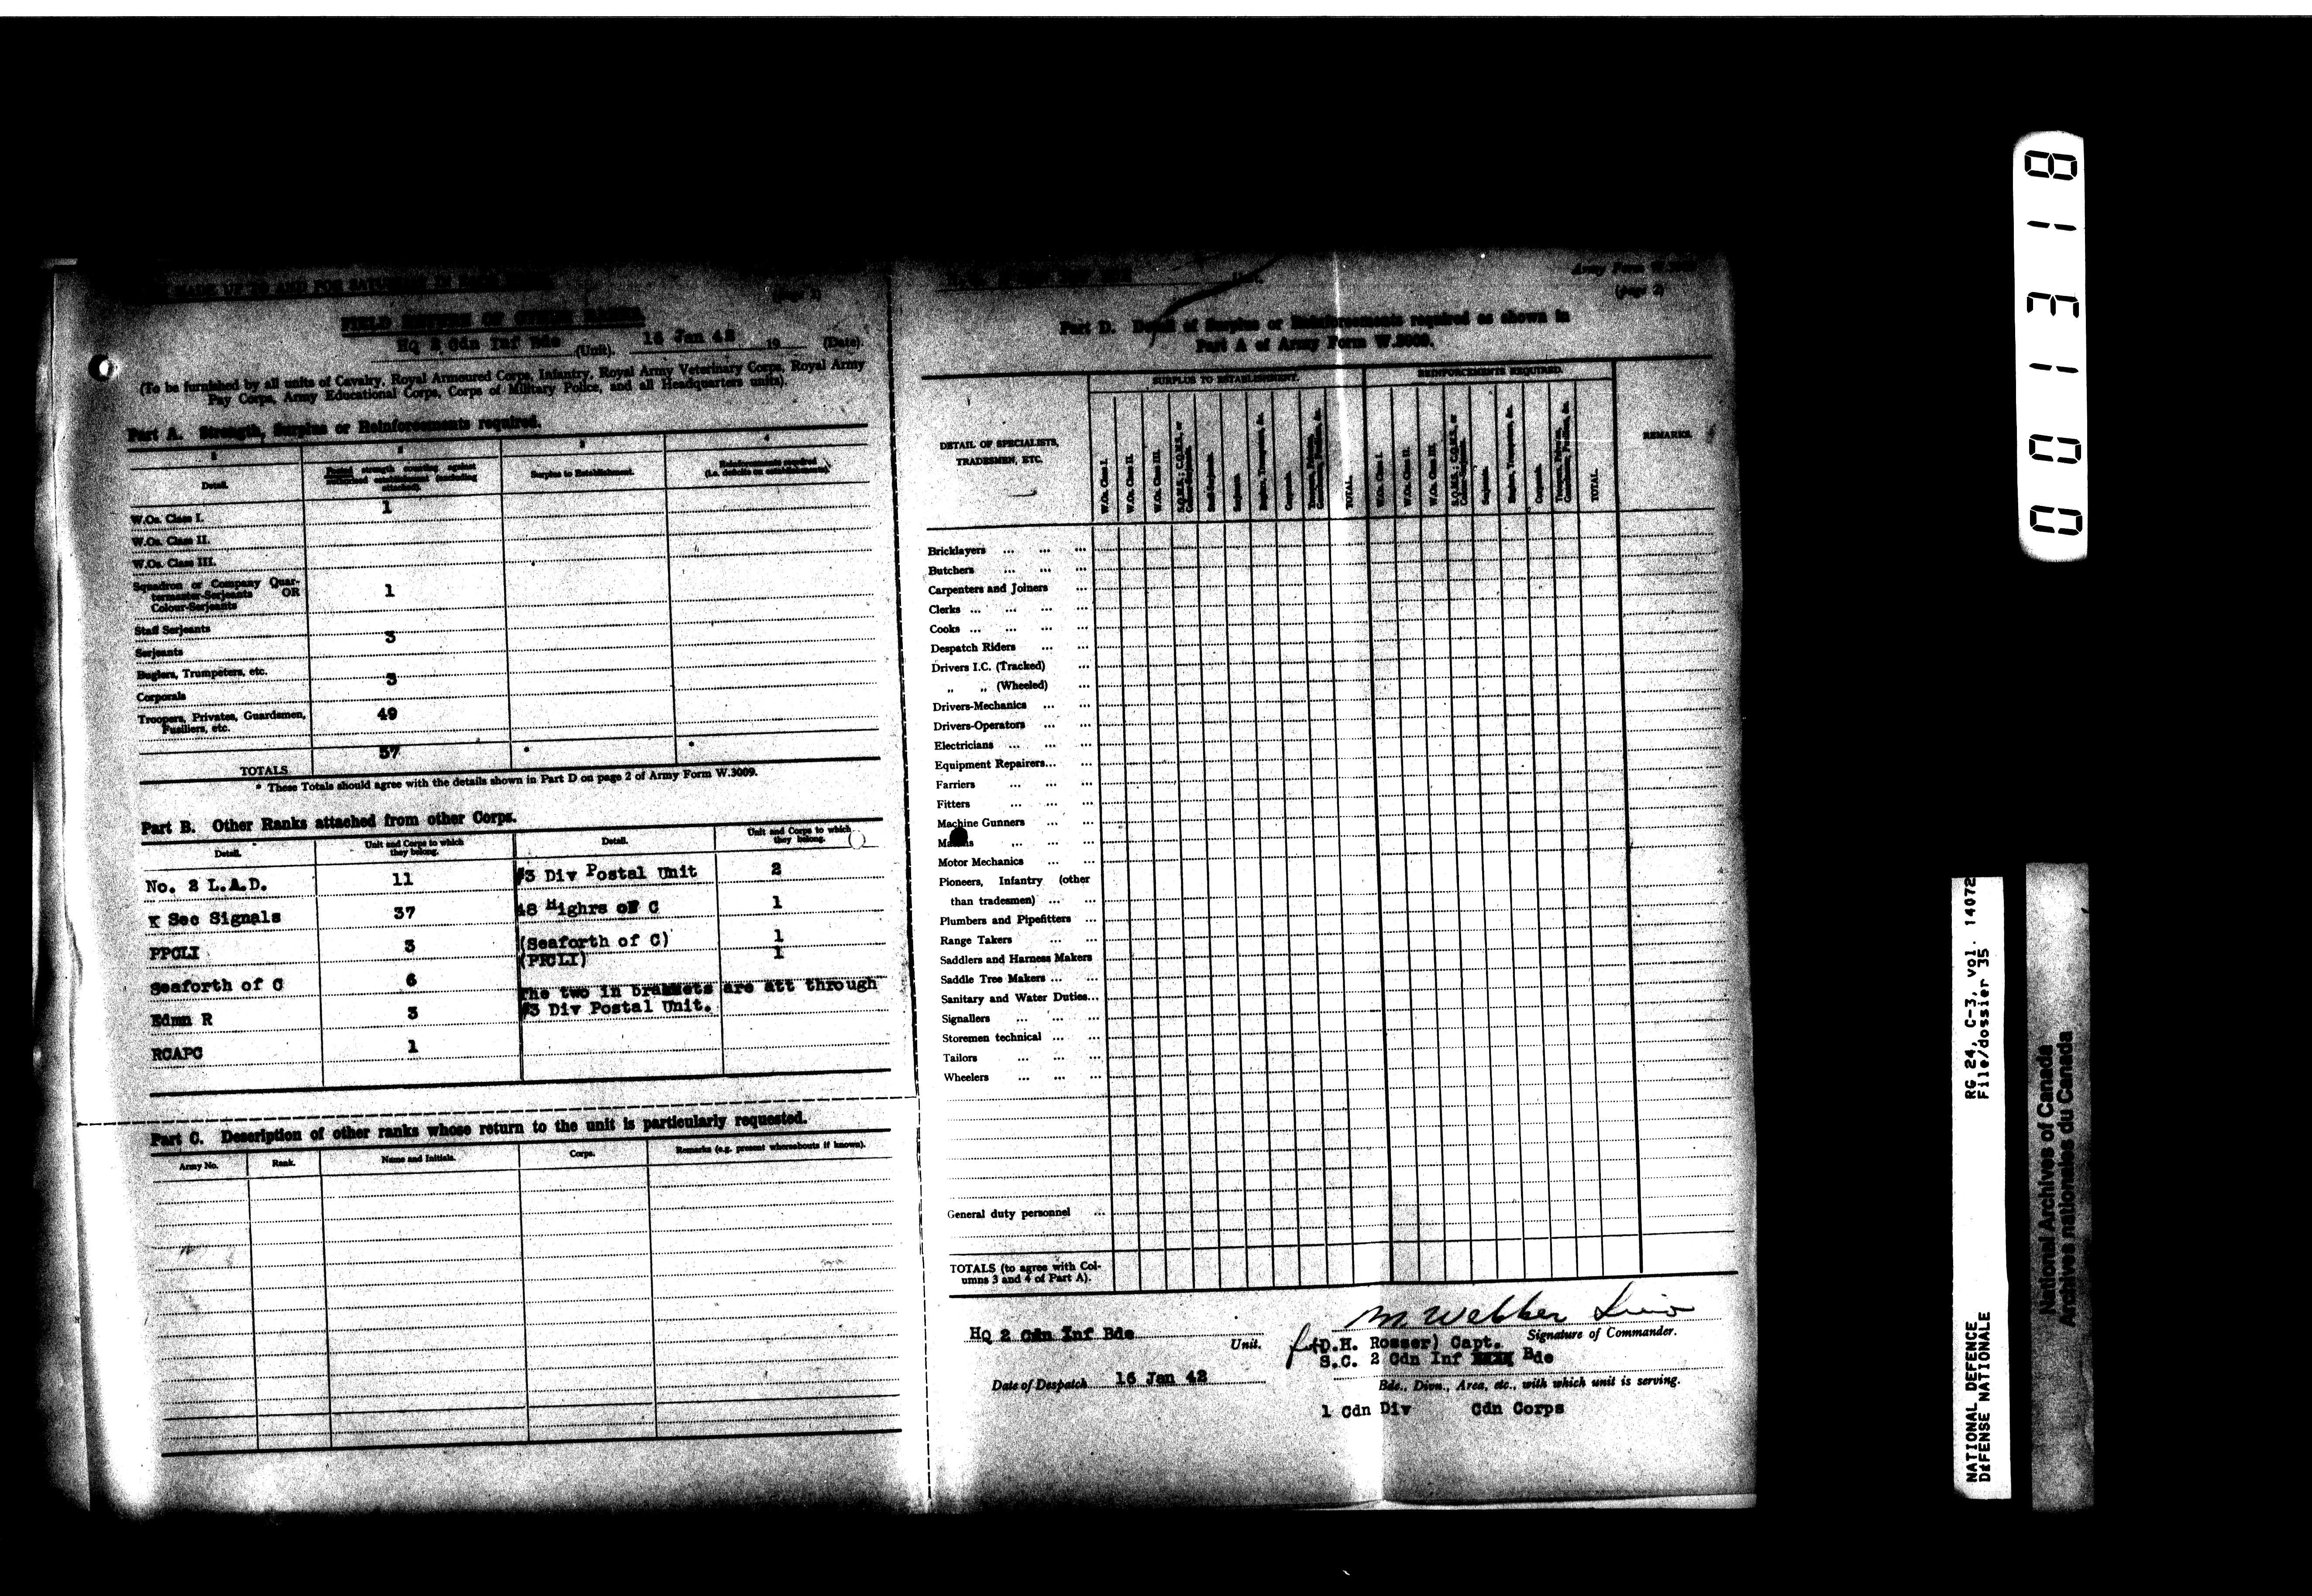 MADE UP TO AND FOR SATURDAY IN EACH
(page 1)
FIELD RETURN OF OTHER RANKS
HQ 2 Cdn Inf Bde (Unit). 16 Jan 42 19 (Date).
(To be furnished by all units of Cavalry, Royal Armoured Corps, Infantry, Royal Army Veterinary Corps, Royal Army
Pay Corps, Army Educational Corps, Corps of Military Police, and all Headquarters units).
Part A. Strength, Surplus or Reinforcements required.
1 2 3 4
Detail. Posted strength counting against authorized establishment (excluding attached). Surplus to Establishment. Reinforcements required (i.e. deficits on establishment)
W.Os. Class I. 1
W.Os. Class II.
W.Os. Class III.
Squadron or Company Quar-
termaster-Serjeants OR 1
Colour-Serjeants
Staff Serjeants
Serjeants 3
Buglers, Trumpeters, etc.
Corporals 3
Troopers, Privates, Guardsmen, 49
Fusiliers, etc.
TOTALS 57 * *
* These Totals should agree with the details shown in Part D on page 2 of Army Form W.3009.
Part B. Other Ranks attached from other Corps.
Detail. Unit and Corps to which they belong. Detail. Unit and Corps to which they belong.
No. 2 L.A.D. 11 #3 Div Postal Unit 2
K Sec Signals 37 48 Highrs of C 1
PPCLI 3 (Seaforth of C) 1
(PPCLI) 1
Seaforth of C 6 The two in brackets are att through
Edmn R 3 #3 Div Postal Unit.
RCAPC 1
Part C. Description of other ranks whose return to the unit is particularly requested.
Army No. Rank. Name and Initials. Corps. Remarks (e.g. present whereabouts if known).
Army Form W.3009
(page 2)
Part D. Detail of Surplus or Reinforcements required as shown in
Part A of Army Form W.3009.
DETAIL OF SPECIALISTS, TRADESMEN, ETC. SURPLUS TO ESTABLISHMENT. REINFORCEMENTS REQUIRED. REMARKS.
W.Os. Class I. W.Os. Class II. W.Os. Class III. S.Q.M.S.; C.Q.M.S., or Colour-Serjeants. Staff-Serjeants. Serjeants. Buglers, Trumpeters, &c. Corporals. Troopers, Privates, Guardsmen, Fusiliers, &c. TOTAL.
W.Os. Class I. W.Os. Class II. W.Os. Class III. S.Q.M.S.; C.Q.M.S., or Colour-Serjeants. Serjeants. Buglers, Trumpeters, &c. Corporals. Troopers, Privates, Guardsmen, Fusiliers, &c. TOTAL.
Bricklayers ... ... ...
Butchers ... ... ...
Carpenters and Joiners ...
Clerks ... ... ... ...
Cooks ... ... ... ...
Despatch Riders ... ...
Drivers I.C. (Tracked) ...
„ „ (Wheeled) ...
Drivers-Mechanics ... ...
Drivers-Operators ... ...
Electricians ... ... ...
Equipment Repairers... ...
Farriers ... ... ...
Fitters ... ... ...
Machine Gunners ... ...
Masons ... ... ...
Motor Mechanics ... ...
Pioneers, Infantry (other
than tradesmen) ... ...
Plumbers and Pipefitters ...
Range Takers ... ...
Saddlers and Harness Makers
Saddle Tree Makers ... ...
Sanitary and Water Duties...
Signallers ... ... ...
Storemen technical ... ...
Tailors ... ... ...
Wheelers ... ... ...
General duty personnel ...
TOTALS (to agree with Col-
umns 3 and 4 of Part A).
M Webber
HQ 2 Cdn Inf Bde Unit. for (D.H. Rosser) Capt. Signature of Commander.
S.C. 2 Cdn Inf Bde
Date of Despatch 16 Jan 42 Bde., Divn., Area, etc., with which unit is serving.
1 Cdn Div Cdn Corps
001318
RG 24, C-3, vol. 14072
File/dossier 35
NATIONAL DEFENCE
DÉFENSE NATIONALE
National Archives of Canada
Archives nationales du Canada